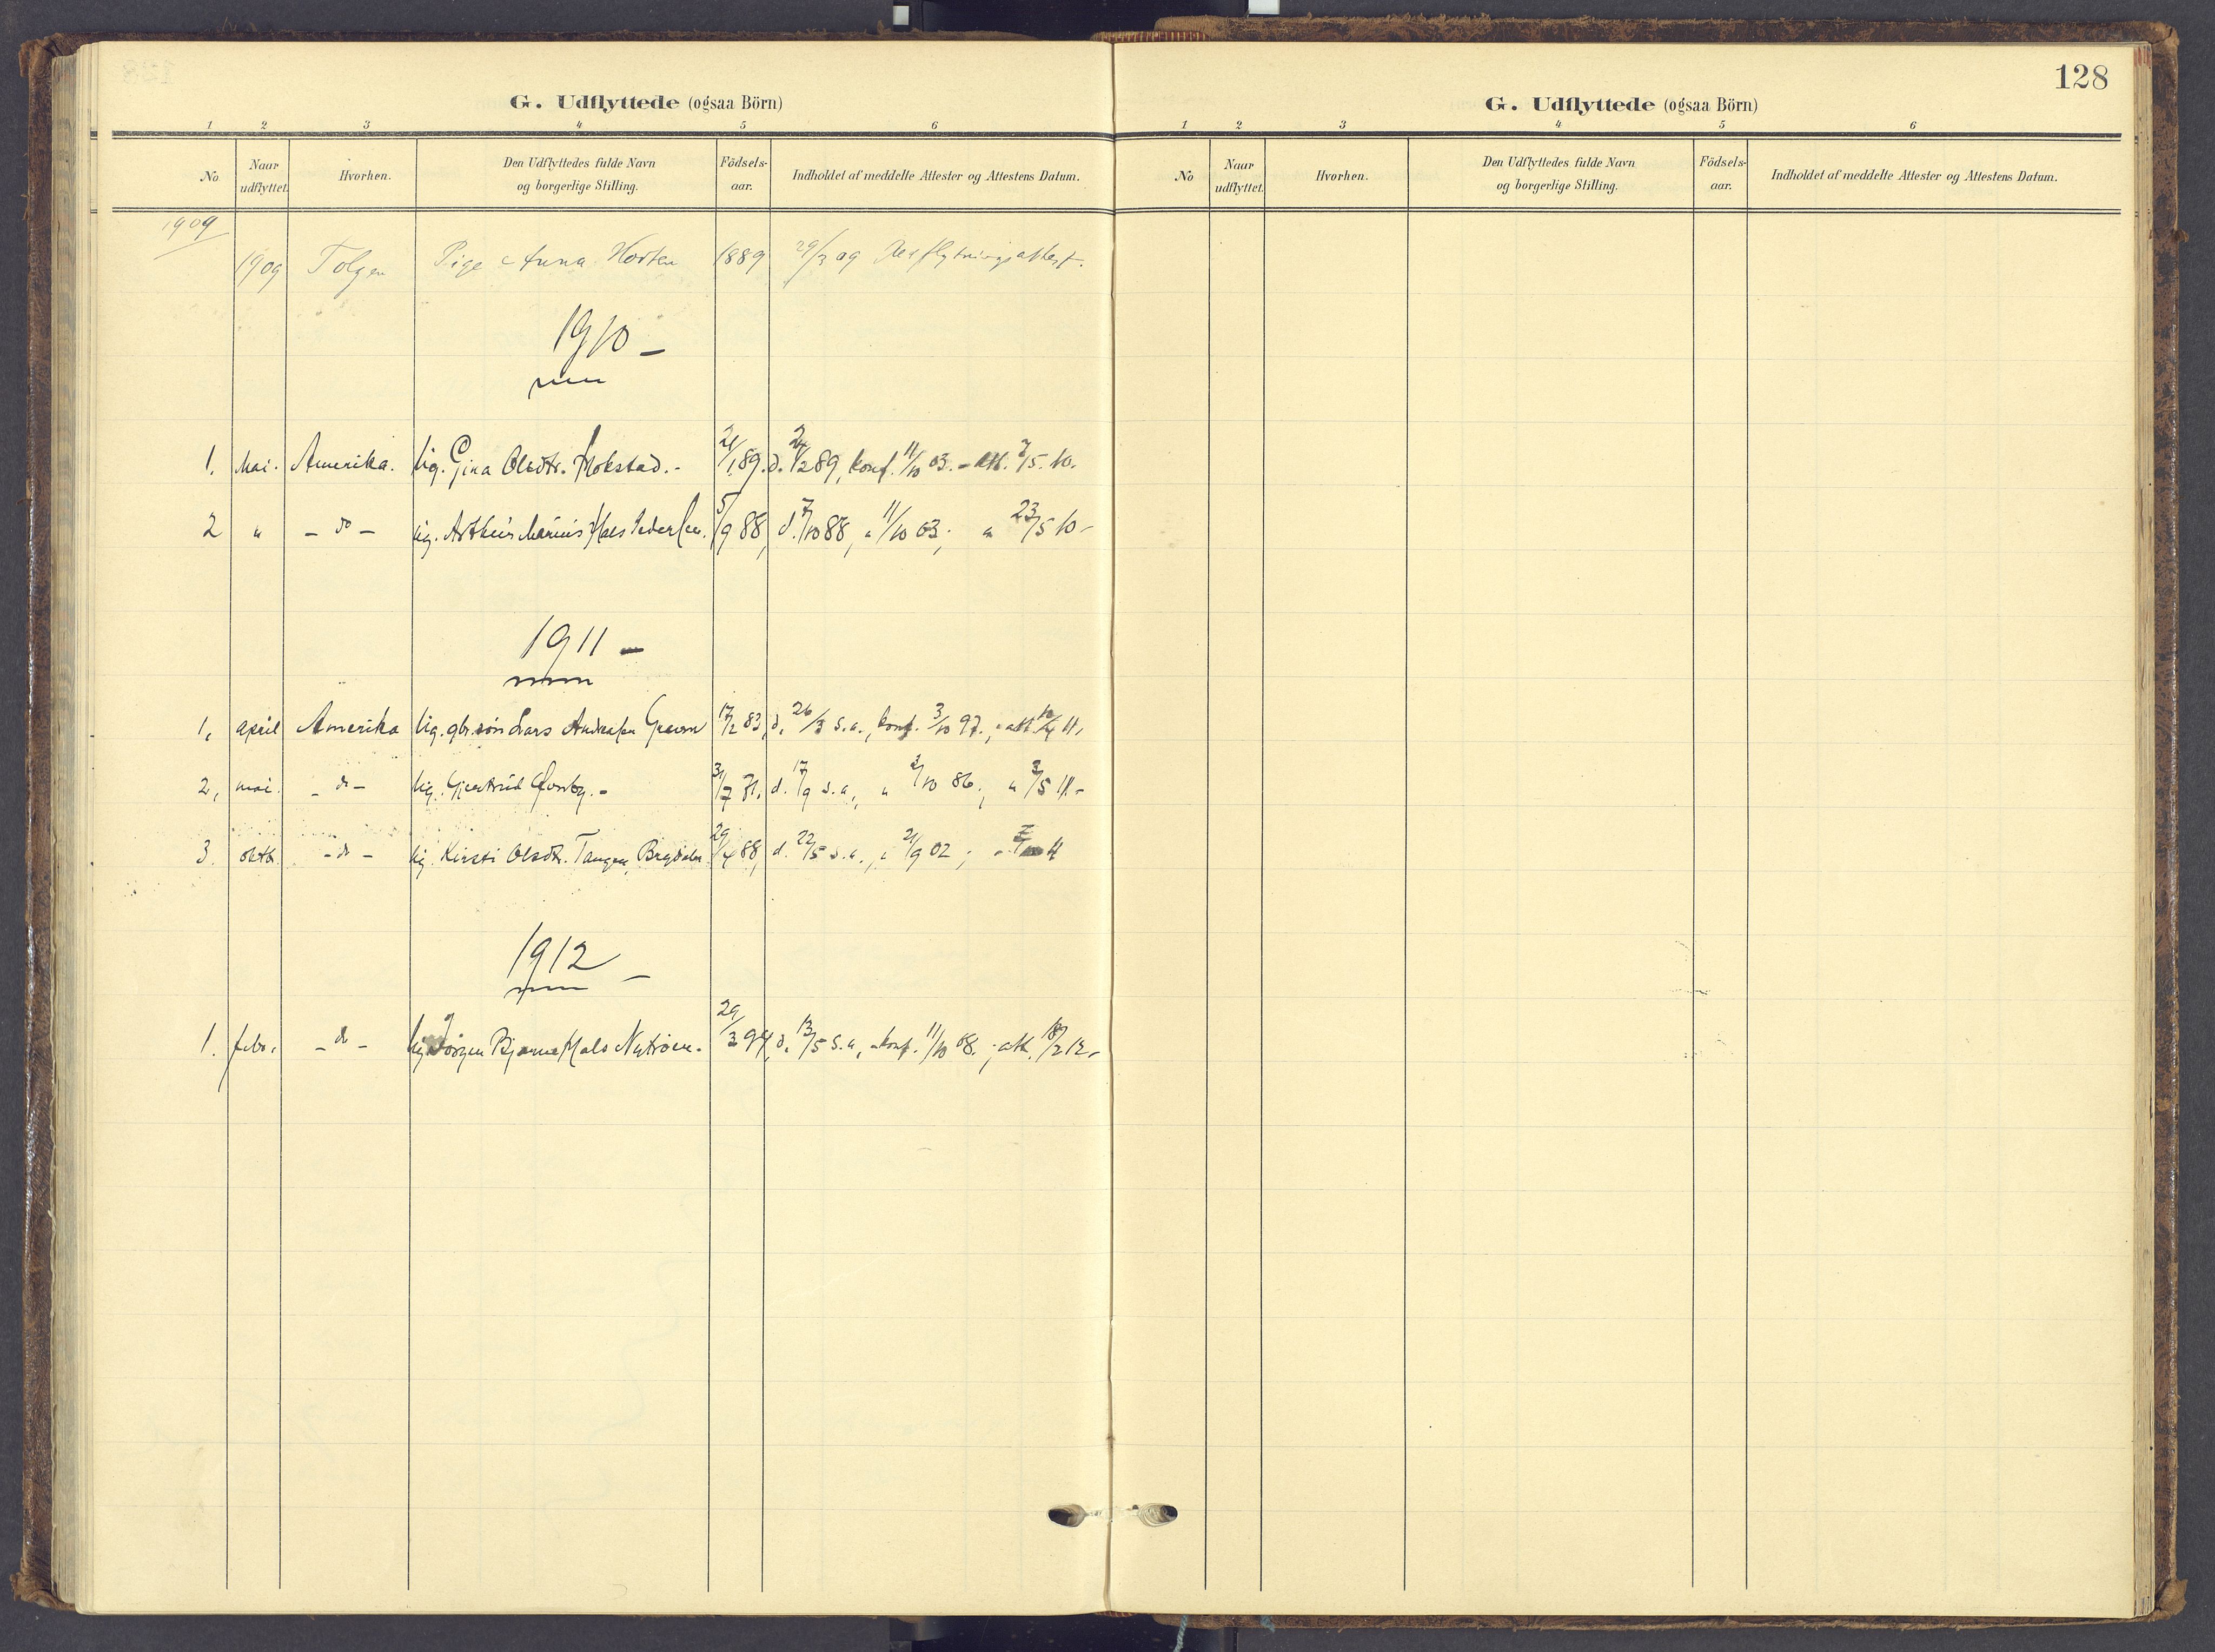 128
G. Udflyttede (ogsaa Börn)
1 2 3 4 5 6
No. Naar udflyttet. Hvorhen. Den Udflyttedes fulde Navn og borgerlige Stilling. Födsels-aar. Indholdet af meddelte Attester og Attestens Datum.
1909
1909 Tolgen Pige Anna Horten 1889 29/3 09
1910 –
1. Mai. Amerika. Ug. Gina Olsdtr. Mokstad. - 21/1 89. d. 24/2 89, konf. 11/10 03. - att. 7/5. 10.
2 " – do – ug. Marius 5/9 88, d. 7/10 88, " 11/10 03; " 23/5 10 -
1911 –
1, april Amerika Ug. gbr.sön Lars 17/2 83, d. 26/3 s.a., konf. 3/10 97., att 11,
2, mai. – do – Ug. 31/7 71, d. 17/9 s.a., " 3/10 86; " 3/5 11. -
3. oktb. – do – ug. Kirsti Olsdtr. Tangen, 29/4 88, d. 22/5 s.a., " 21/9 02; " 11
1912 –
1. febr. – do – Ug Jörgen Bjarne 29/3 94, d. 13/5 s.a., konf. 11/10 08.; att. 12 -
G. Udflyttede (ogsaa Börn)
1 2 3 4 5 6
No Naar udflyttet. Hvorhen. Den Udflyttedes fulde Navn og borgerlige Stilling. Födsels-aar. Indholdet af meddelte Attester og Attestens Datum.